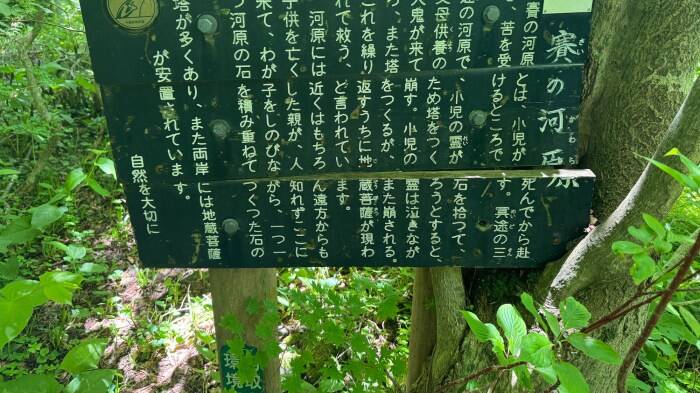 賽の河原
がわら
賽の河原とは、小児が死んでから赴
、苦を受けるところです。冥途の三
めいど
途の河原で、小児の霊が石を拾って、
父母供養のため塔をつくろうとすると、
大鬼が来て崩す。小児の霊は泣きなが
ら、また塔をつくるが、また崩される。
これを繰り返すうちに地蔵菩薩が現わ
れて救う、と言われています。
河原には近くはもちろん遠方からも
子供を亡くした親が、人知れずここに
来て、わが子をしのびながら、一つ一
つ河原の石を積み重ねてつくつた石の
塔が多くあり、また両岸には地蔵菩薩
が安置されています。
自然を大切に
環境